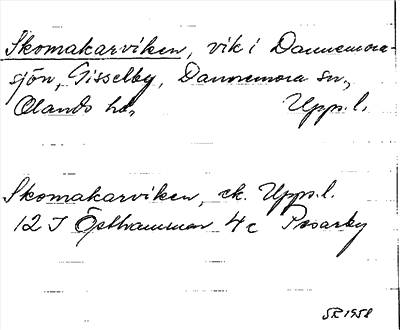 Skomakarviken, vik i Dannemora-
sjön, Gisselby, Dannemora sn,
Olands hd, Upps. l.
Skomakarviken, ek. Upps. l.
12 I Östhammar 4c Prosarby
SR 1958